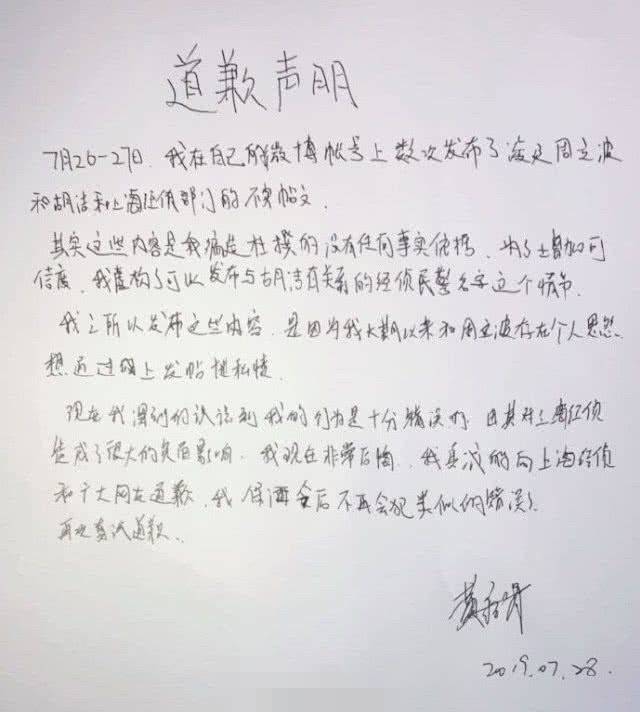 道歉声明
7月26-27日,我在自己的微博帐号上数次发布了涉足周立波
和胡洁和上海经侦部门的不实帖文.
其实这些内容是我编造杜撰的没有任何事实依据.为了增加可
信度,我虚构了可以发布与胡洁有关系的经侦民警名字这个情节.
我之所以发布这些内容.是因为我长期以来和周立波存在个人恩怨.
想通过网上发帖泄私愤.
现在我深刻的认识到我的行为是十分错误的.由其对上海经侦
造成了很大的负面影响.我现在非常后悔.我真诚的向上海经侦
和广大网友道歉,我保证今后不再会犯类似的错误.
再次真诚道歉.
2019.07.28.